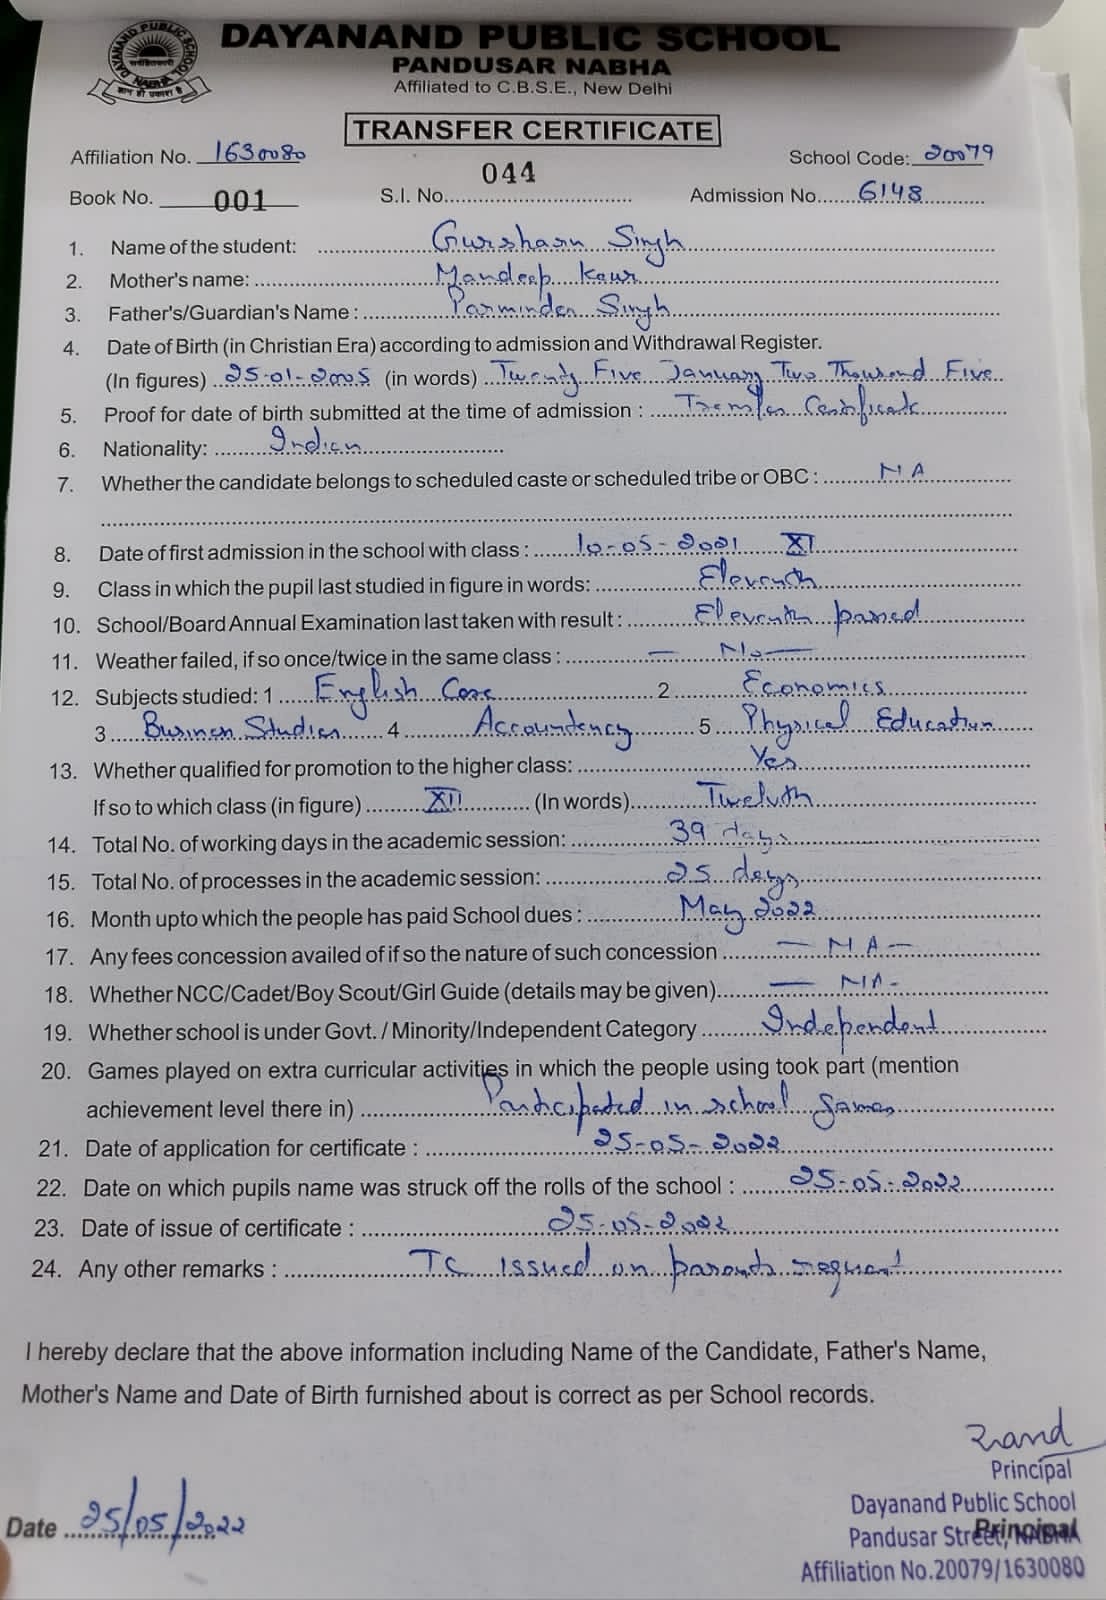 DAYANAND PUBLIC SCHOOL
PANDUSAR NABHA
Affiliated to C.B.S.E., New Delhi
TRANSFER CERTIFICATE
Affiliation No. 1630080 School Code: 20079
Book No. 001 S.I. No. 044 Admission No. 6148
1. Name of the student: Gursharn Singh
2. Mother's name: Mandeep Kaur
3. Father's/Guardian's Name : Parminder Singh
4. Date of Birth (in Christian Era) according to admission and Withdrawal Register.
(In figures) 25-01-2005 (in words) Twenty Five January Two Thousand Five
5. Proof for date of birth submitted at the time of admission : Transfer Certificate
6. Nationality: Indian
7. Whether the candidate belongs to scheduled caste or scheduled tribe or OBC : NA
8. Date of first admission in the school with class : 10-05-2021 XI
9. Class in which the pupil last studied in figure in words: Eleventh
10. School/Board Annual Examination last taken with result : Eleventh passed
11. Weather failed, if so once/twice in the same class : — No —
12. Subjects studied: 1 English Core 2 Economics
3 Business Studies 4 Accountency 5 Physical Education
13. Whether qualified for promotion to the higher class: Yes
If so to which class (in figure) XII (In words) Twelvth
14. Total No. of working days in the academic session: 39 days
15. Total No. of processes in the academic session: 25 days
16. Month upto which the people has paid School dues : May 2022
17. Any fees concession availed of if so the nature of such concession — NA —
18. Whether NCC/Cadet/Boy Scout/Girl Guide (details may be given) — NA -
19. Whether school is under Govt. / Minority/Independent Category Independent
20. Games played on extra curricular activities in which the people using took part (mention
achievement level there in) Participated in school games
21. Date of application for certificate : 25-05-2022
22. Date on which pupils name was struck off the rolls of the school : 25-05-2022
23. Date of issue of certificate : 25-05-2022
24. Any other remarks : TC issued on parents request
I hereby declare that the above information including Name of the Candidate, Father's Name,
Mother's Name and Date of Birth furnished about is correct as per School records.
Principal
Dayanand Public School
Date 25/05/2022
Pandusar Street, NABHA
Principal
Affiliation No.20079/1630080